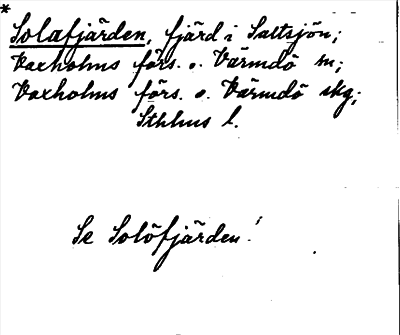 *
Solafjärden, fjärd i Saltsjön;
Vaxholms förs. o. Värmdö m;
Vaxholms förs. o. Värmdö skg;
Sthlms l.
Se Solöfjärden!